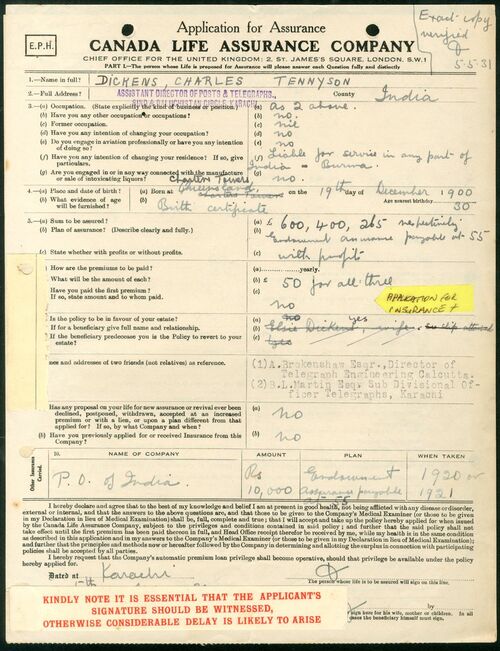 Exact copy
verified
5-5-31
E.P.H.
Application for Assurance
CANADA LIFE ASSURANCE COMPANY
CHIEF OFFICE FOR THE UNITED KINGDOM: 2, ST. JAMES'S SQUARE, LONDON, S.W.1
PART I.—The person whose Life is proposed for Assurance will please answer each Question fully and distinctly
1.—Name in full? DICKENS, CHARLES TENNYSON
2.—Full Address? ASSISTANT DIRECTOR OF POSTS & TELEGRAPHS, County India
SIND & BALUCHISTAN CIRCLE, KARACHI.
3.—(a) Occupation. (State explicitly the kind of business or position.) (a) as 2 above.
(b) Have you any other occupation or occupations? (b) no.
(c) Former occupation. (c) nil
(d) Have you any intention of changing your occupation? (d) no
(e) Do you engage in aviation professionally or have you any intention of doing so? (e) no
(f) Have you any intention of changing your residence? If so, give particulars. (f) Liable for service in any part of
India or Burma.
(g) Are you engaged in or in any way connected with the manufacture or sale of intoxicating liquors? (g) no
Charters Towers
4.—(a) Place and date of birth? (a) Born at Queensland, on the 19th day of December 1900
(b) What evidence of age will be furnished? (b) Birth certificate Age nearest birthday 30
5.—(a) Sum to be assured? (a) £ 600, 400, 265 respectively
(b) Plan of assurance? (Describe clearly and fully.) (b) Endowment assurance payable at 55
(c) State whether with profits or without profits. (c) with profits
How are the premiums to be paid? (a) yearly.
What will be the amount of each? (b) £ 50 for all three
Have you paid the first premium?
If so, state amount and to whom paid. (c) no
APPLICATION FOR
INSURANCE
Is the policy to be in favour of your estate? (a) no yes
If for a beneficiary give full name and relationship. (b) Elsie Dickens, wife
If the beneficiary predecease you is the Policy to revert to your estate? (c) yes
mes and addresses of two friends (not relatives) as reference. (1) A. Brokenshaw Esqr., Director of
Telegraph Engineering Calcutta.
(2) B.L. Martin Esq. Sub Divisional Of-
ficer Telegraphs, Karachi
Has any proposal on your life for new assurance or revival ever been
declined, postponed, withdrawn, accepted at an increased
premium or with a lien, or upon a plan different from that
applied for? If so, by what Company and when? (a) no
(b) Have you previously applied for or received Insurance from this Company? (b) no
Other Insurance Carried.
10. NAME OF COMPANY AMOUNT PLAN WHEN TAKEN
P.O. of India Rs 10,000 Endowment assurance payable 1920 or 1921
I hereby declare and agree that to the best of my knowledge and belief I am at present in good health, not being afflicted with any disease or disorder,
external or internal, and that the answers to the above questions are, and that those to be given to the Company's Medical Examiner (or those to be given
in my Declaration in lieu of Medical Examination) shall be, full, complete and true; that I will accept and take up the policy hereby applied for when issued
by the Canada Life Assurance Company, subject to the privileges and conditions contained in said policy; and further that the said policy shall not
take effect until the first premium has been paid thereon in full, and Head Office receipt therefor be received by me, while my health is in the same condition
as described in this application and in my answers to the Company's Medical Examiner (or those to be given in my Declaration in lieu of Medical Examination);
and further that the principles and methods now or hereafter followed by the Company in determining and allotting the surplus in connection with participating
policies shall be accepted by all parties.
I hereby request that the Company's automatic premium loan privilege shall become operative, should that privilege be available under the policy
hereby applied for.
Dated at Karachi
The person whose life is to be assured will sign on this line.
KINDLY NOTE IT IS ESSENTIAL THAT THE APPLICANT'S
SIGNATURE SHOULD BE WITNESSED,
OTHERWISE CONSIDERABLE DELAY IS LIKELY TO ARISE
sign here for his wife, mother or children. In all
cases the beneficiary himself must sign.